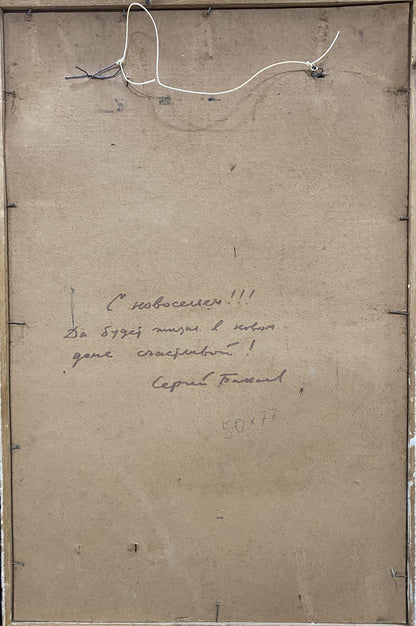 С новосельем!!!
Да будет жизнь в новом
доме счастливой!
Сергей
50x77